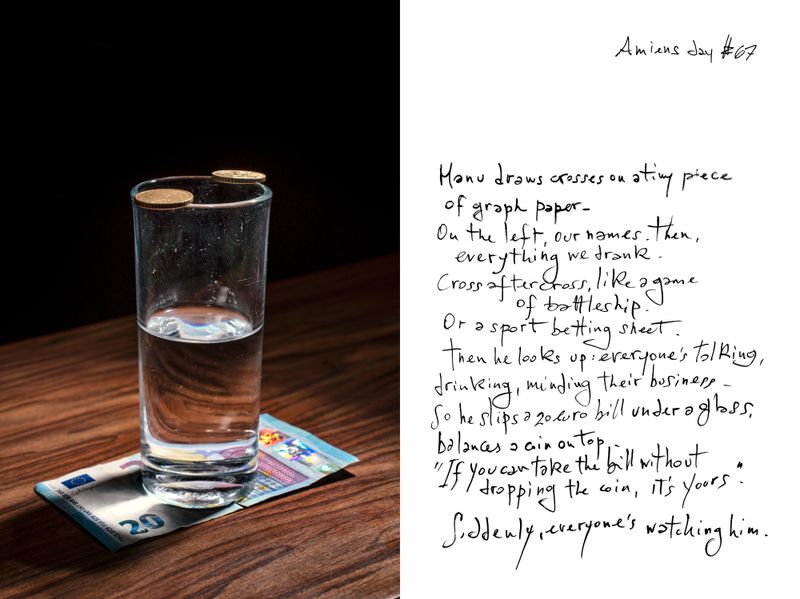 Amiens day #67
Manu draws crosses on a tiny piece
of graph paper_
On the left, our names. Then,
everything we drank.
Cross after cross, like a game
of battleship.
Or a sport betting sheet.
Then he looks up: everyone's talking,
drinking, minding their business_
So he slips a 20 euro bill under a glass,
balances a coin on top_
"If you can take the bill without
dropping the coin, it's yours".
Suddenly, everyone's watching him.
20